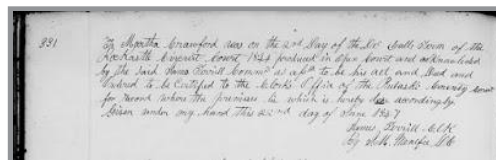 331
To Martha Crawford was on the 2nd Day of the Dr. Calls Term of the
Rockcastle Circuit Court 1844 produced in Open Court and acknowledged
by the said James Terrill Commr as afsd to be his act and Deed and
Ordered to be Certified to the Clerks Office of the Pulaski County Court
for record where the premises lie which is hereby done accordingly.
Given under my hand this 22nd day of June 1847
James Terrill CLK
by